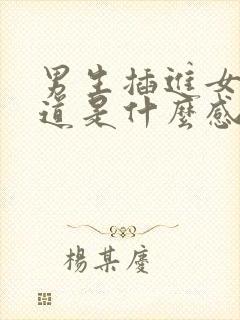 男生插進女
道是什麼感
楊某慶